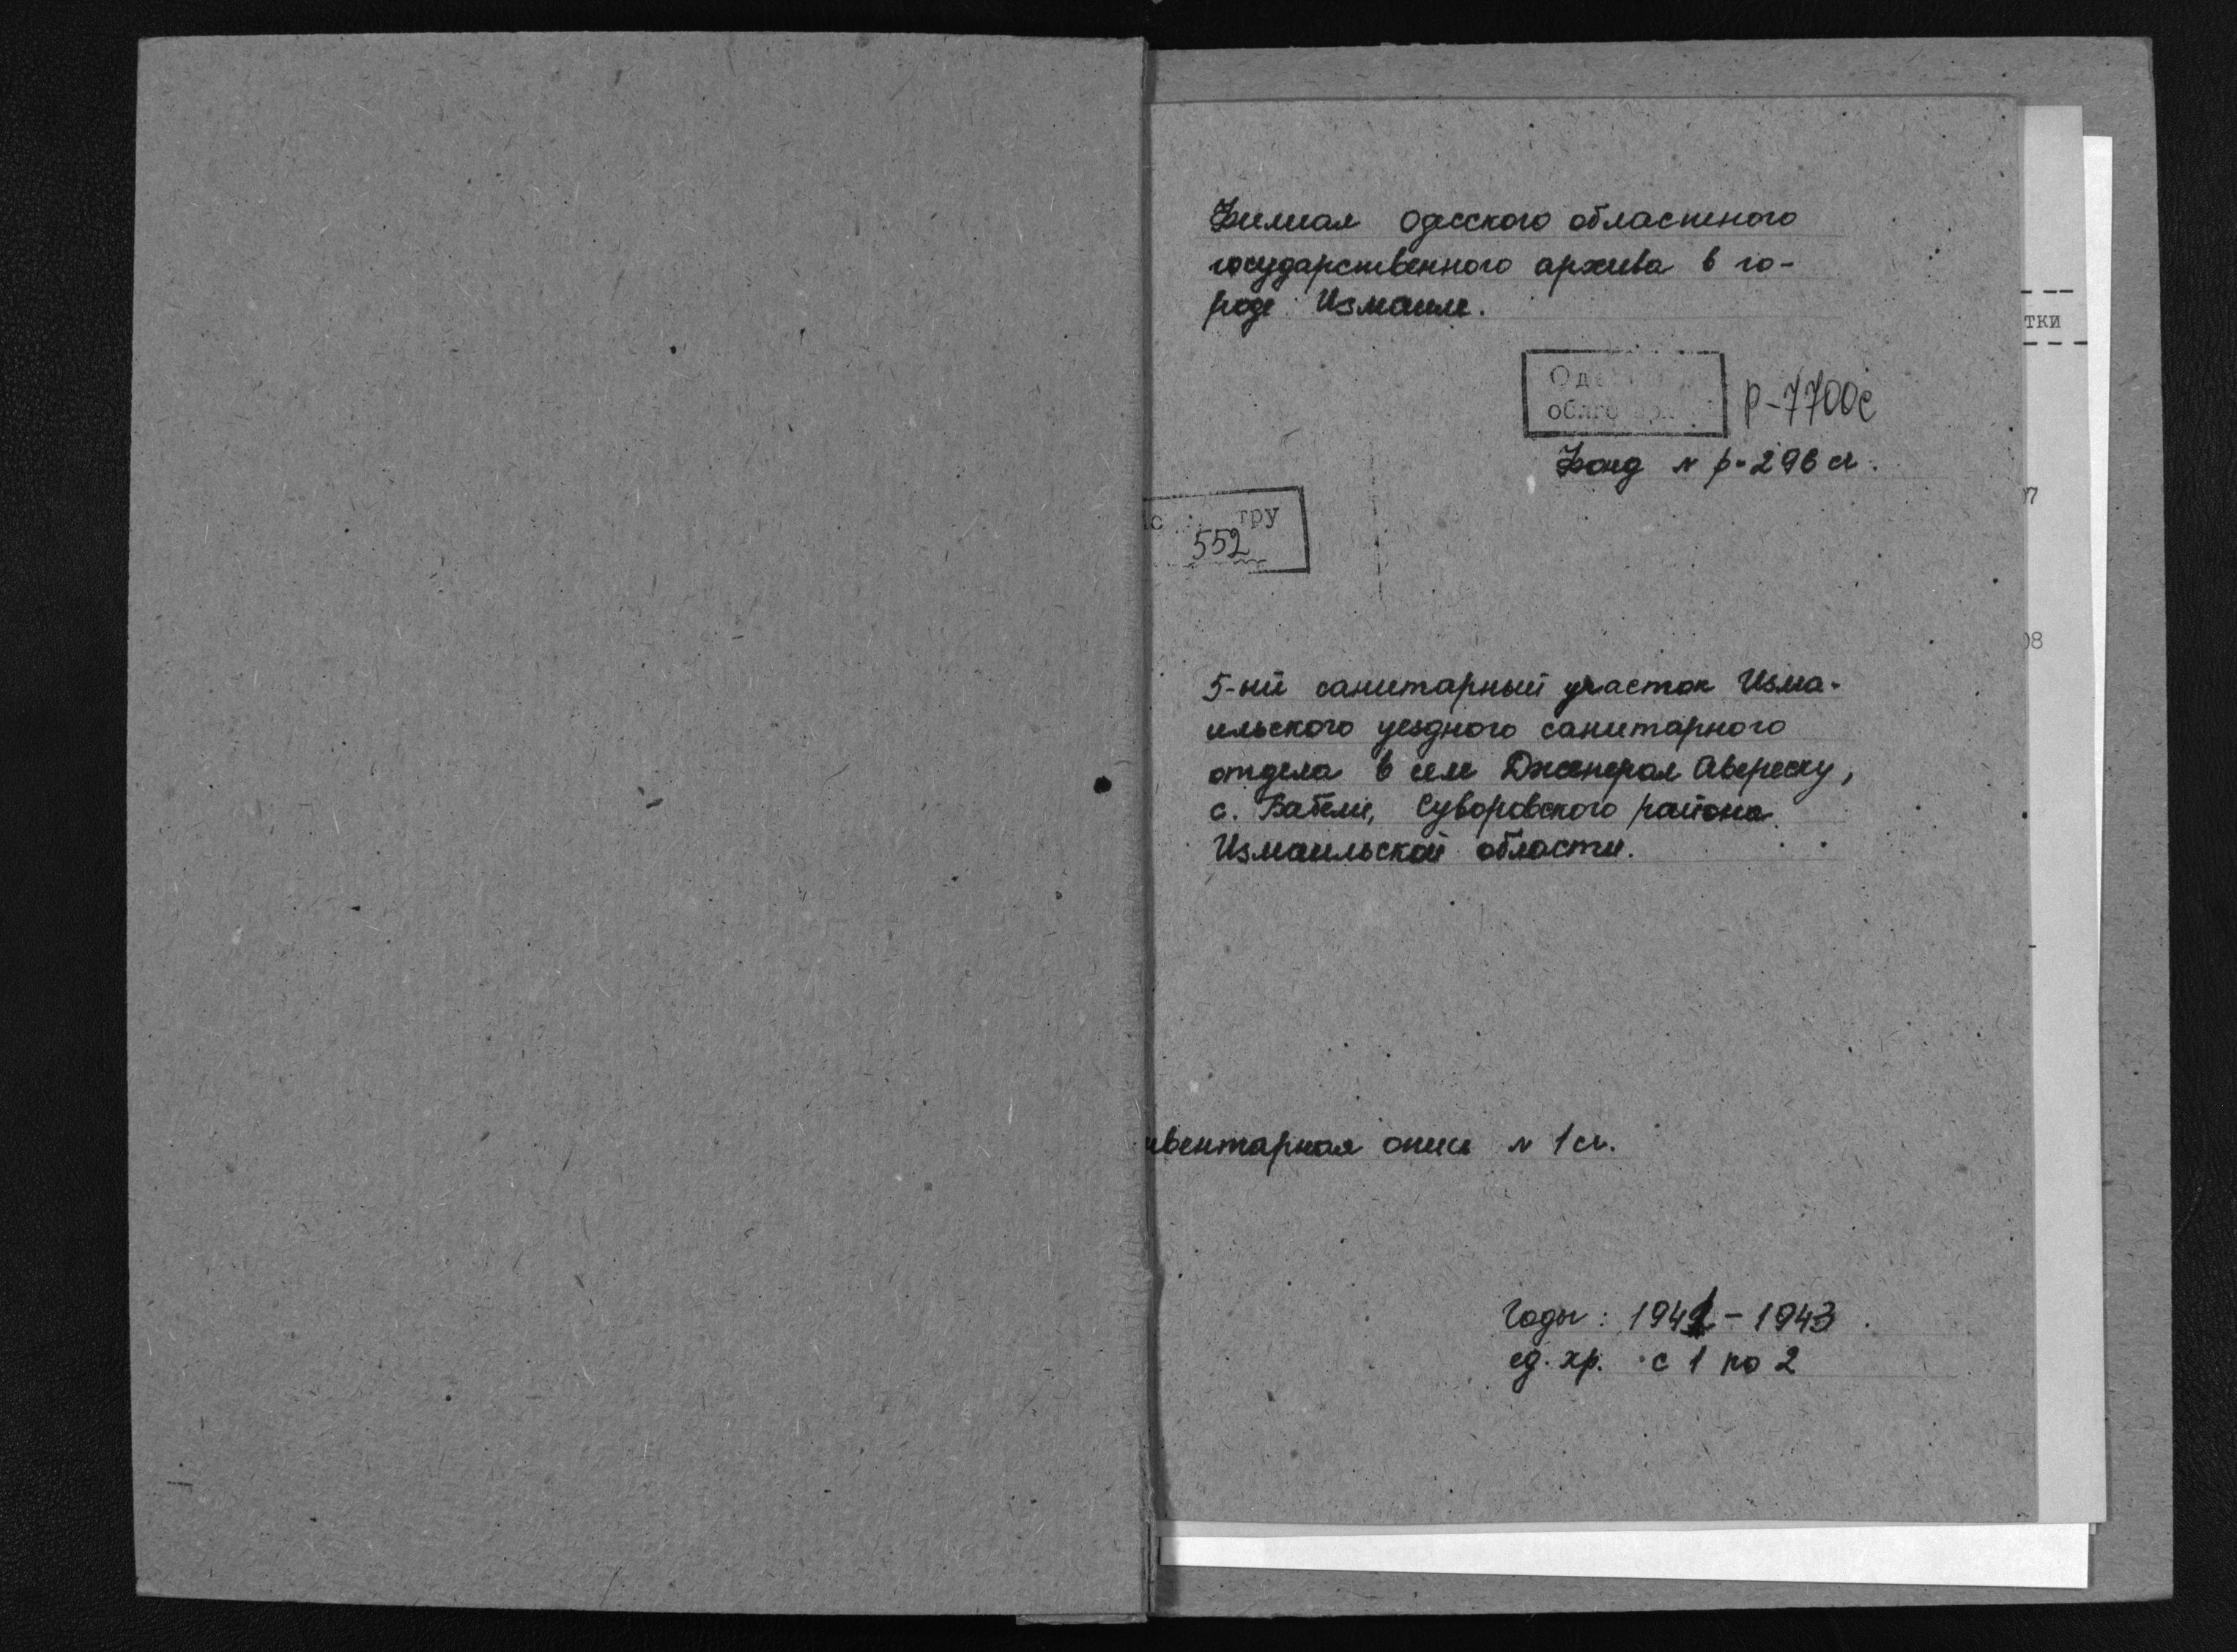 Филиал Одесского областного
государственного архива в го-
роде Измаиле.
Оде
облго
Р-7700с
Фонд № р-296 сл.
тру
552
5-ый санитарный участок Изма-
ильского уездного санитарного
отдела в селе Дженерал Авереску,
с. Бабели, Суворовского района
Измаильской области.
нвентарная опись № 1 сл.
Годы: 1941 - 1943
ед. хр. с 1 по 2
тки
07
08